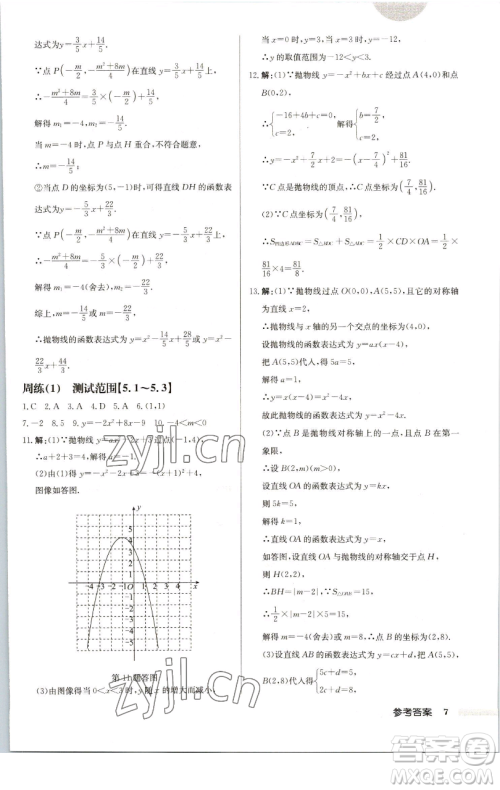 达式为y=3/5x+14/5.
∵点P(-m/2, -m²+8m/4)在直线y=3/5x+14/5上,
∴-m²+8m/4=3/5×(-m/2)+14/5,
解得m₁=-4,m₂=-14/5.
当m=-4时,点P与点H重合,不符合题意,
∴m=-14/5;
②当点D的坐标为(5,-1)时,可得直线DH的函数表
达式为y=-5/3x-22/3.
∵点P(-m/2, -m²+8m/4)在直线y=-5/3x-22/3上,
∴-m²+8m/4=-5/3×(-m/2)-22/3,
解得m₁=-4(舍去),m₂=-22/3,
∴m=-22/3.
综上,m=-14/5或-22/3,
则抛物线的函数表达式为y=x²-14/5x+28/5或y=
x²-22/3x+44/3.
周练(1) 测试范围【5.1~5.3】
1.C 2.A 3.D 4.D 5.A 6.(1,1)
7.-2 8.5 9.y=-2x²+8x-9 10.-4<m<0
11.解:(1)∵抛物线y=ax²-2x+3过点(-1,4),
∴a+2+3=4,解得a=-1.
(2)由(1)得y=-x²-2x+3=-(x+1)²+4,
图像如答图.
第11题答图
(3)由图像得当0<x<3时,y随x的增大而减小.
当x=0时,y=3,当x=3时,y=-12,
∴y的取值范围为-12<y<3.
12.解:(1)∵抛物线y=-x²+bx+c经过点A(4,0)和点
B(0,2),
∴{-16+4b+c=0, c=2, 解得{b=7/2, c=2,
∴y=-x²+7/2x+2=-(x-7/4)²+81/16.
∵C点是抛物线的顶点,∴C点坐标为(7/4, 81/16).
∴S四边形ADBC=S△ADC
81/16×4=81/8.
13.解:(1)∵抛物线过点O(0,0),A(5,5),且它的对称轴
为直线x=2,
∴抛物线与x轴的另一个交点坐标为(4,0).
设抛物线的函数表达式为y=ax(x-4),
把A(5,5)代入,得5a=5,解得a=1,
∴y=x(x-4)=x²-4x,
故此抛物线的函数表达式为y=x²-4x.
(2)∵点B是抛物线对称轴上的一点,且点B在第一
象限,
∴设B(2,m)(m>0),
设直线OA的函数表达式为y=kx,
则5k=5,
解得k=1,
∴直线OA的函数表达式为y=x,
如答图,设直线OA与抛物线的对称轴交于点H,
则H(2,2),
∴BH=|m-2|,∵S△OAB=15,
∴1/2×|m-2|×5=15,
解得m=8或m=-4(舍去),∴点B的坐标为(2,8).
(3)设直线AB的函数表达式为y=cx+d,把A(5,5),
B(2,8)代入得{5c+d=5, 2c+d=8,
参考答案 7
zyjl.cn
zyjl.cn